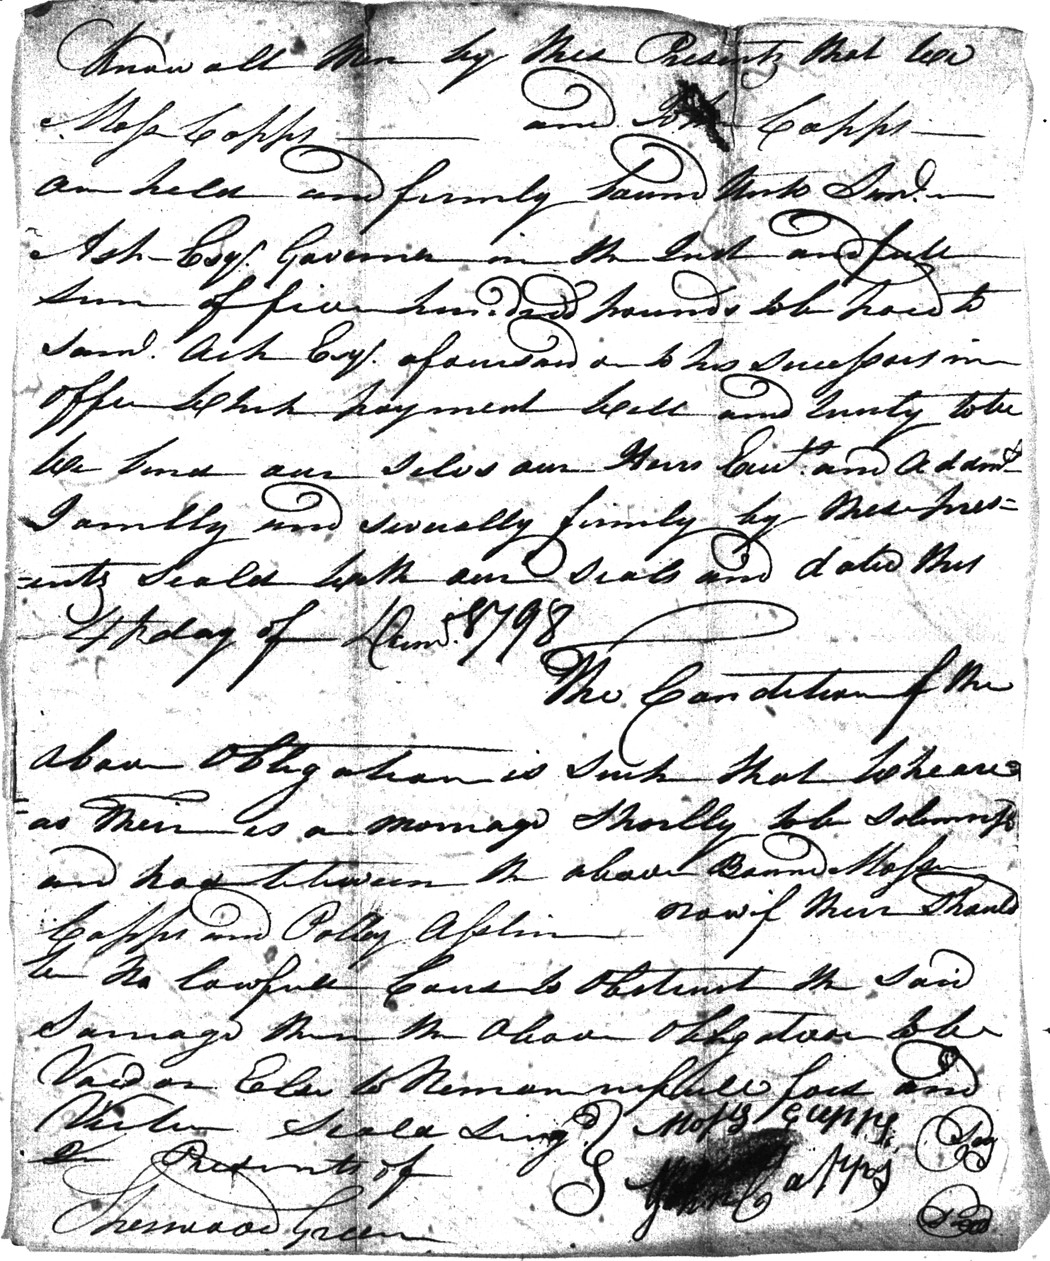 Know all Men by these Presents that we
Moses Capps and John Capps
are held and firmly bound unto Saml.
Ash Esqr. Governer in the Just and full
sum of five hundred pounds to be paid to
Saml. Ash Esqr. aforesaid or to his successors in
office which payment well and truely to be
We bind our selves our Heirs Exrs. and Addmrs
Jointlly and severally firmly by these pres=
=ents seald with our seals and dated this
4th day of 1798
The Condition of the
above Obligation is such that wheare
as their is a marriage shortly to be solemniz
and had between the above Bound Moses
now if their Should
Capps and Polley Aslin
be no lawfull Caus to Obstruct the said
marriage then the above obligation to be
Void or Else to Reman in full fors and
Virtue Seald Singd Moses Capps Seal
In Presents of John Capps Seal
Sherwood Green